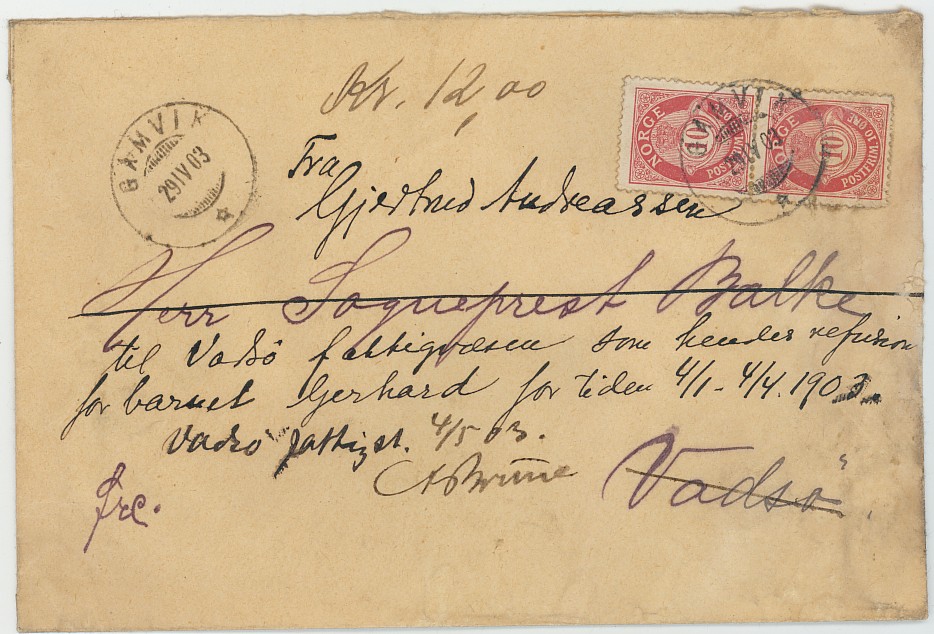 Kr. 12,00
GAMVIK
29 IV 03
NORGE
10
POSTFRIM
GAMVIK
29 IV 03
NORGE
10
POSTFRIM. 10 ØRE
Fra
Gjertrud Andreassen
Herr Sogneprest Balke
til Vadsö fattigvæsen som hendes refusion
for barnet Gerhard for tiden 4/1 - 4/4. 1903.
Vadsö fattigst. 4/5 03.
Vadsö
frc.